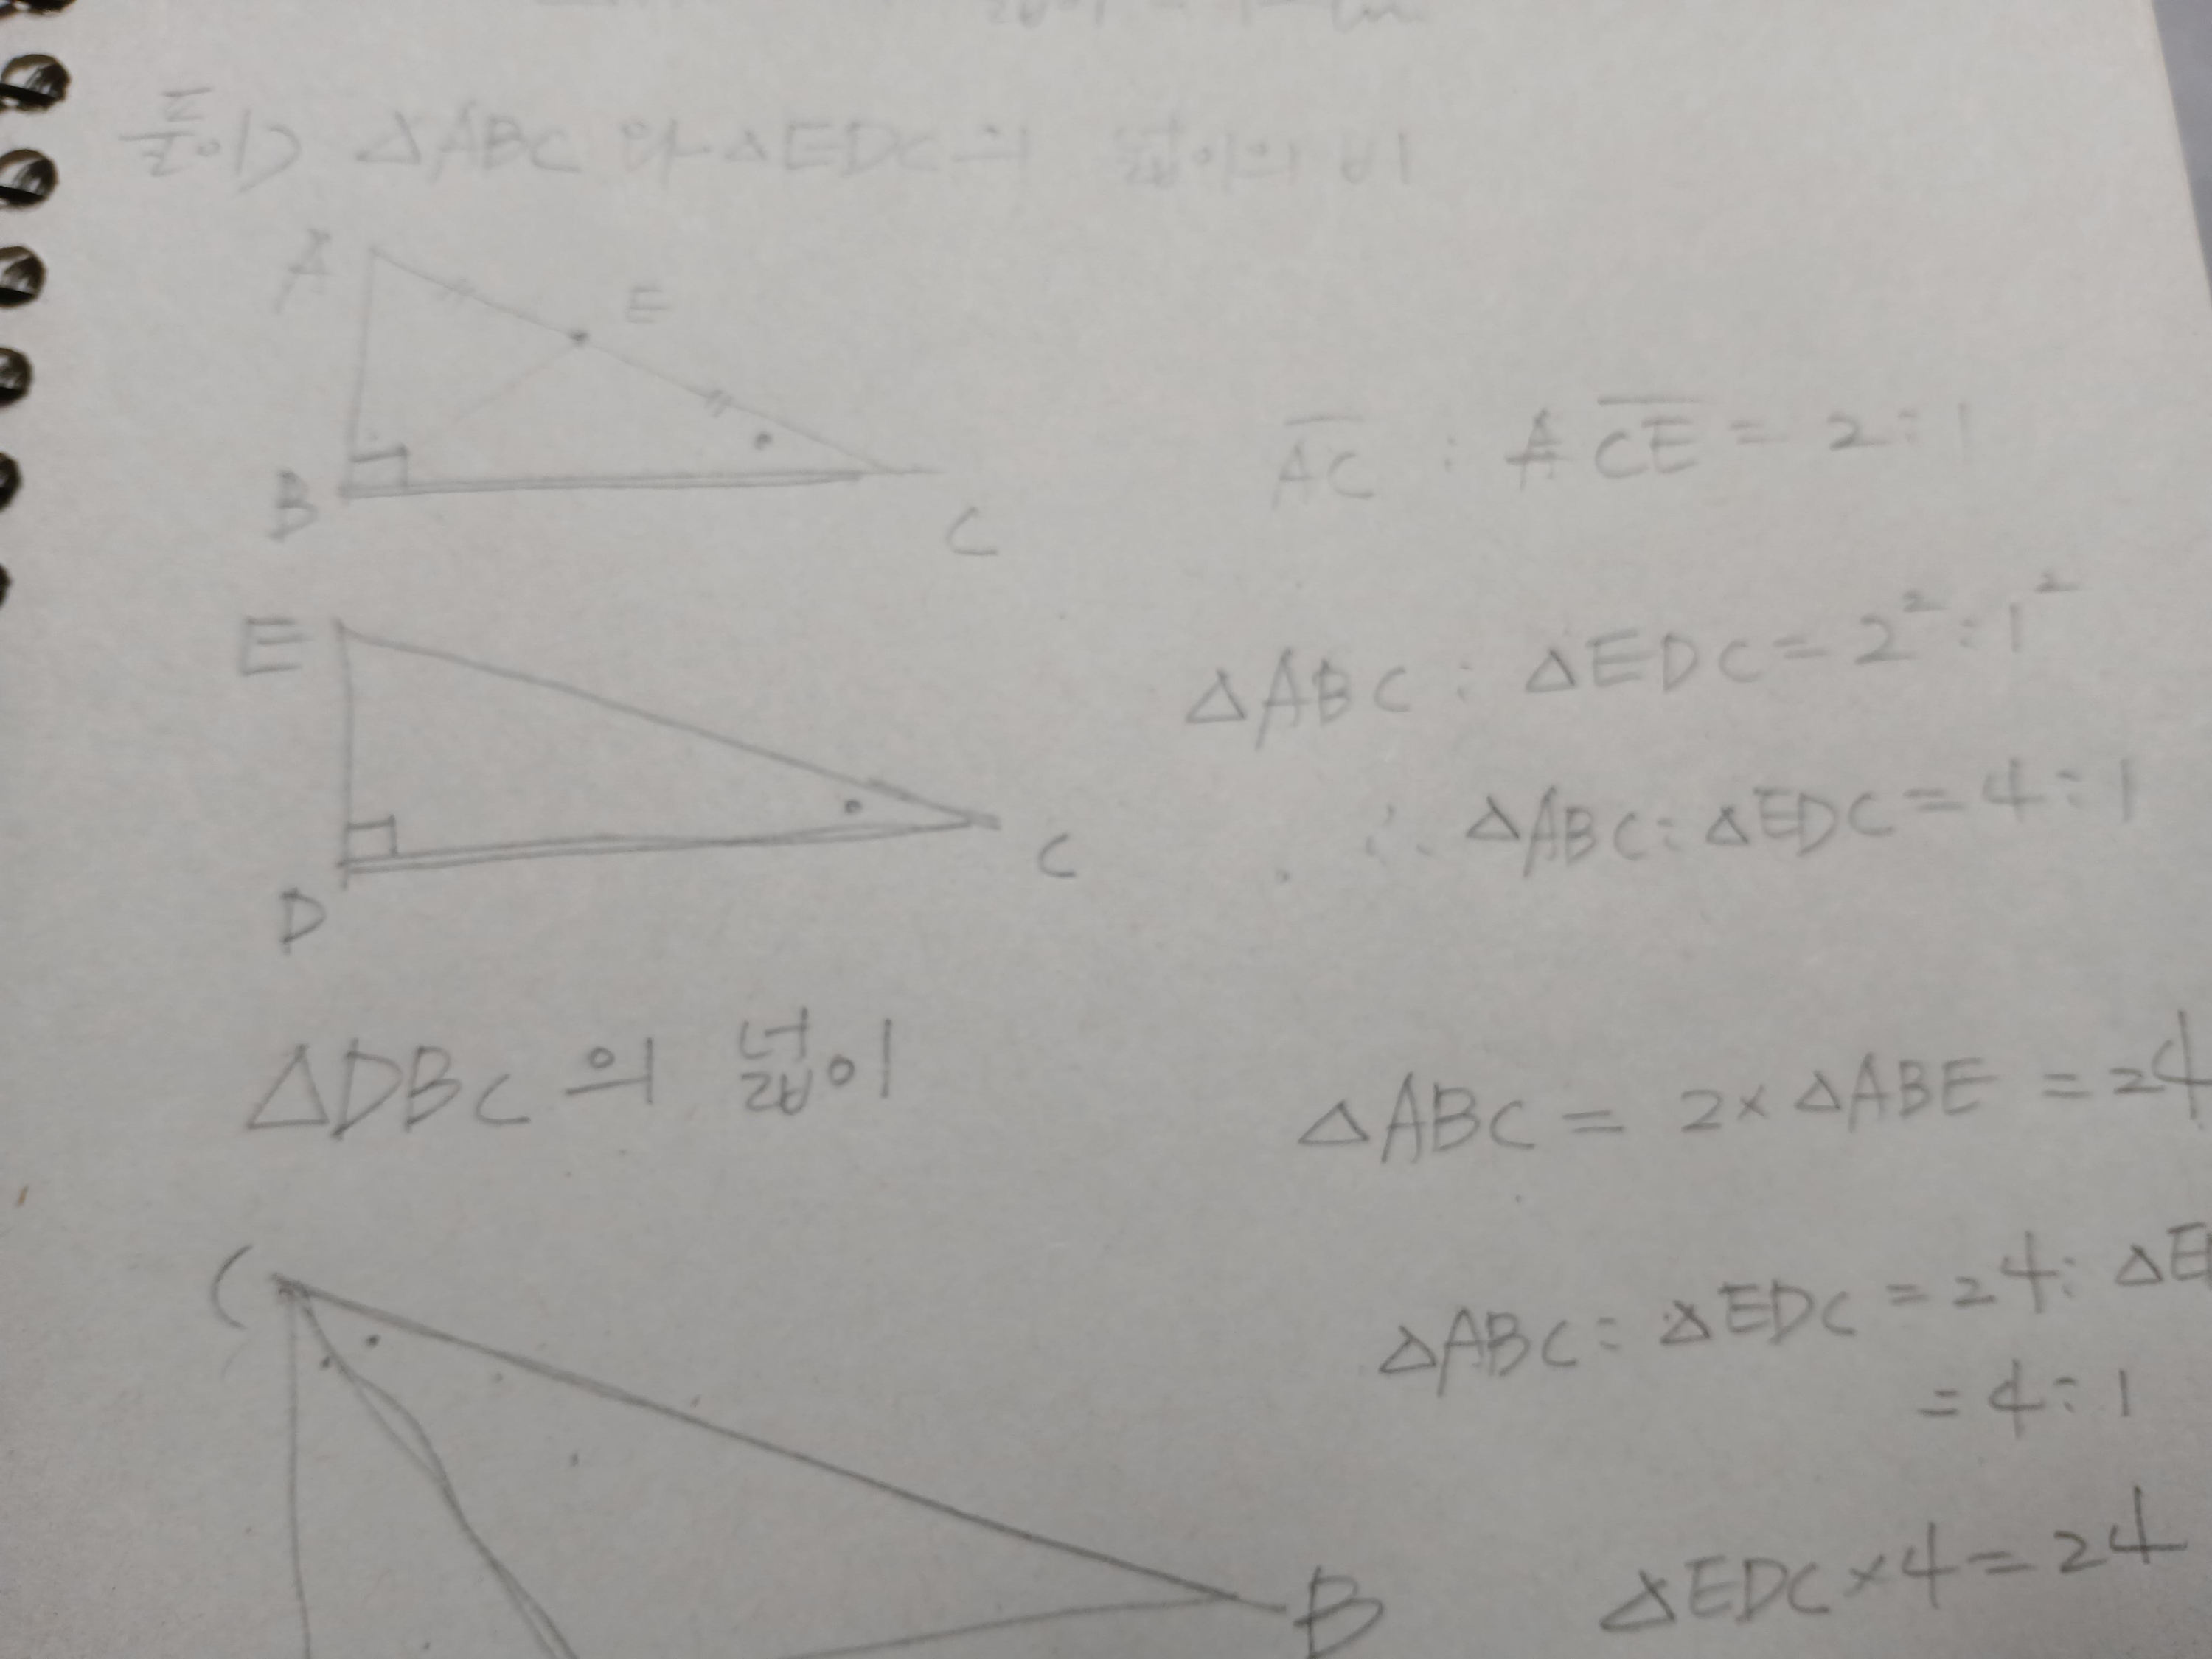 풀이) △ABC 와 △EDC의 넓이의 비
A
E
B
C
AC : CE = 2 : 1
E
△ABC : △EDC = 2² : 1²
∴ △ABC : △EDC = 4 : 1
C
D
△DBC의 넓이
△ABC = 2× △ABE = 24
C
△ABC : △EDC = 24 :
= 4 : 1
B
△EDC×4=24